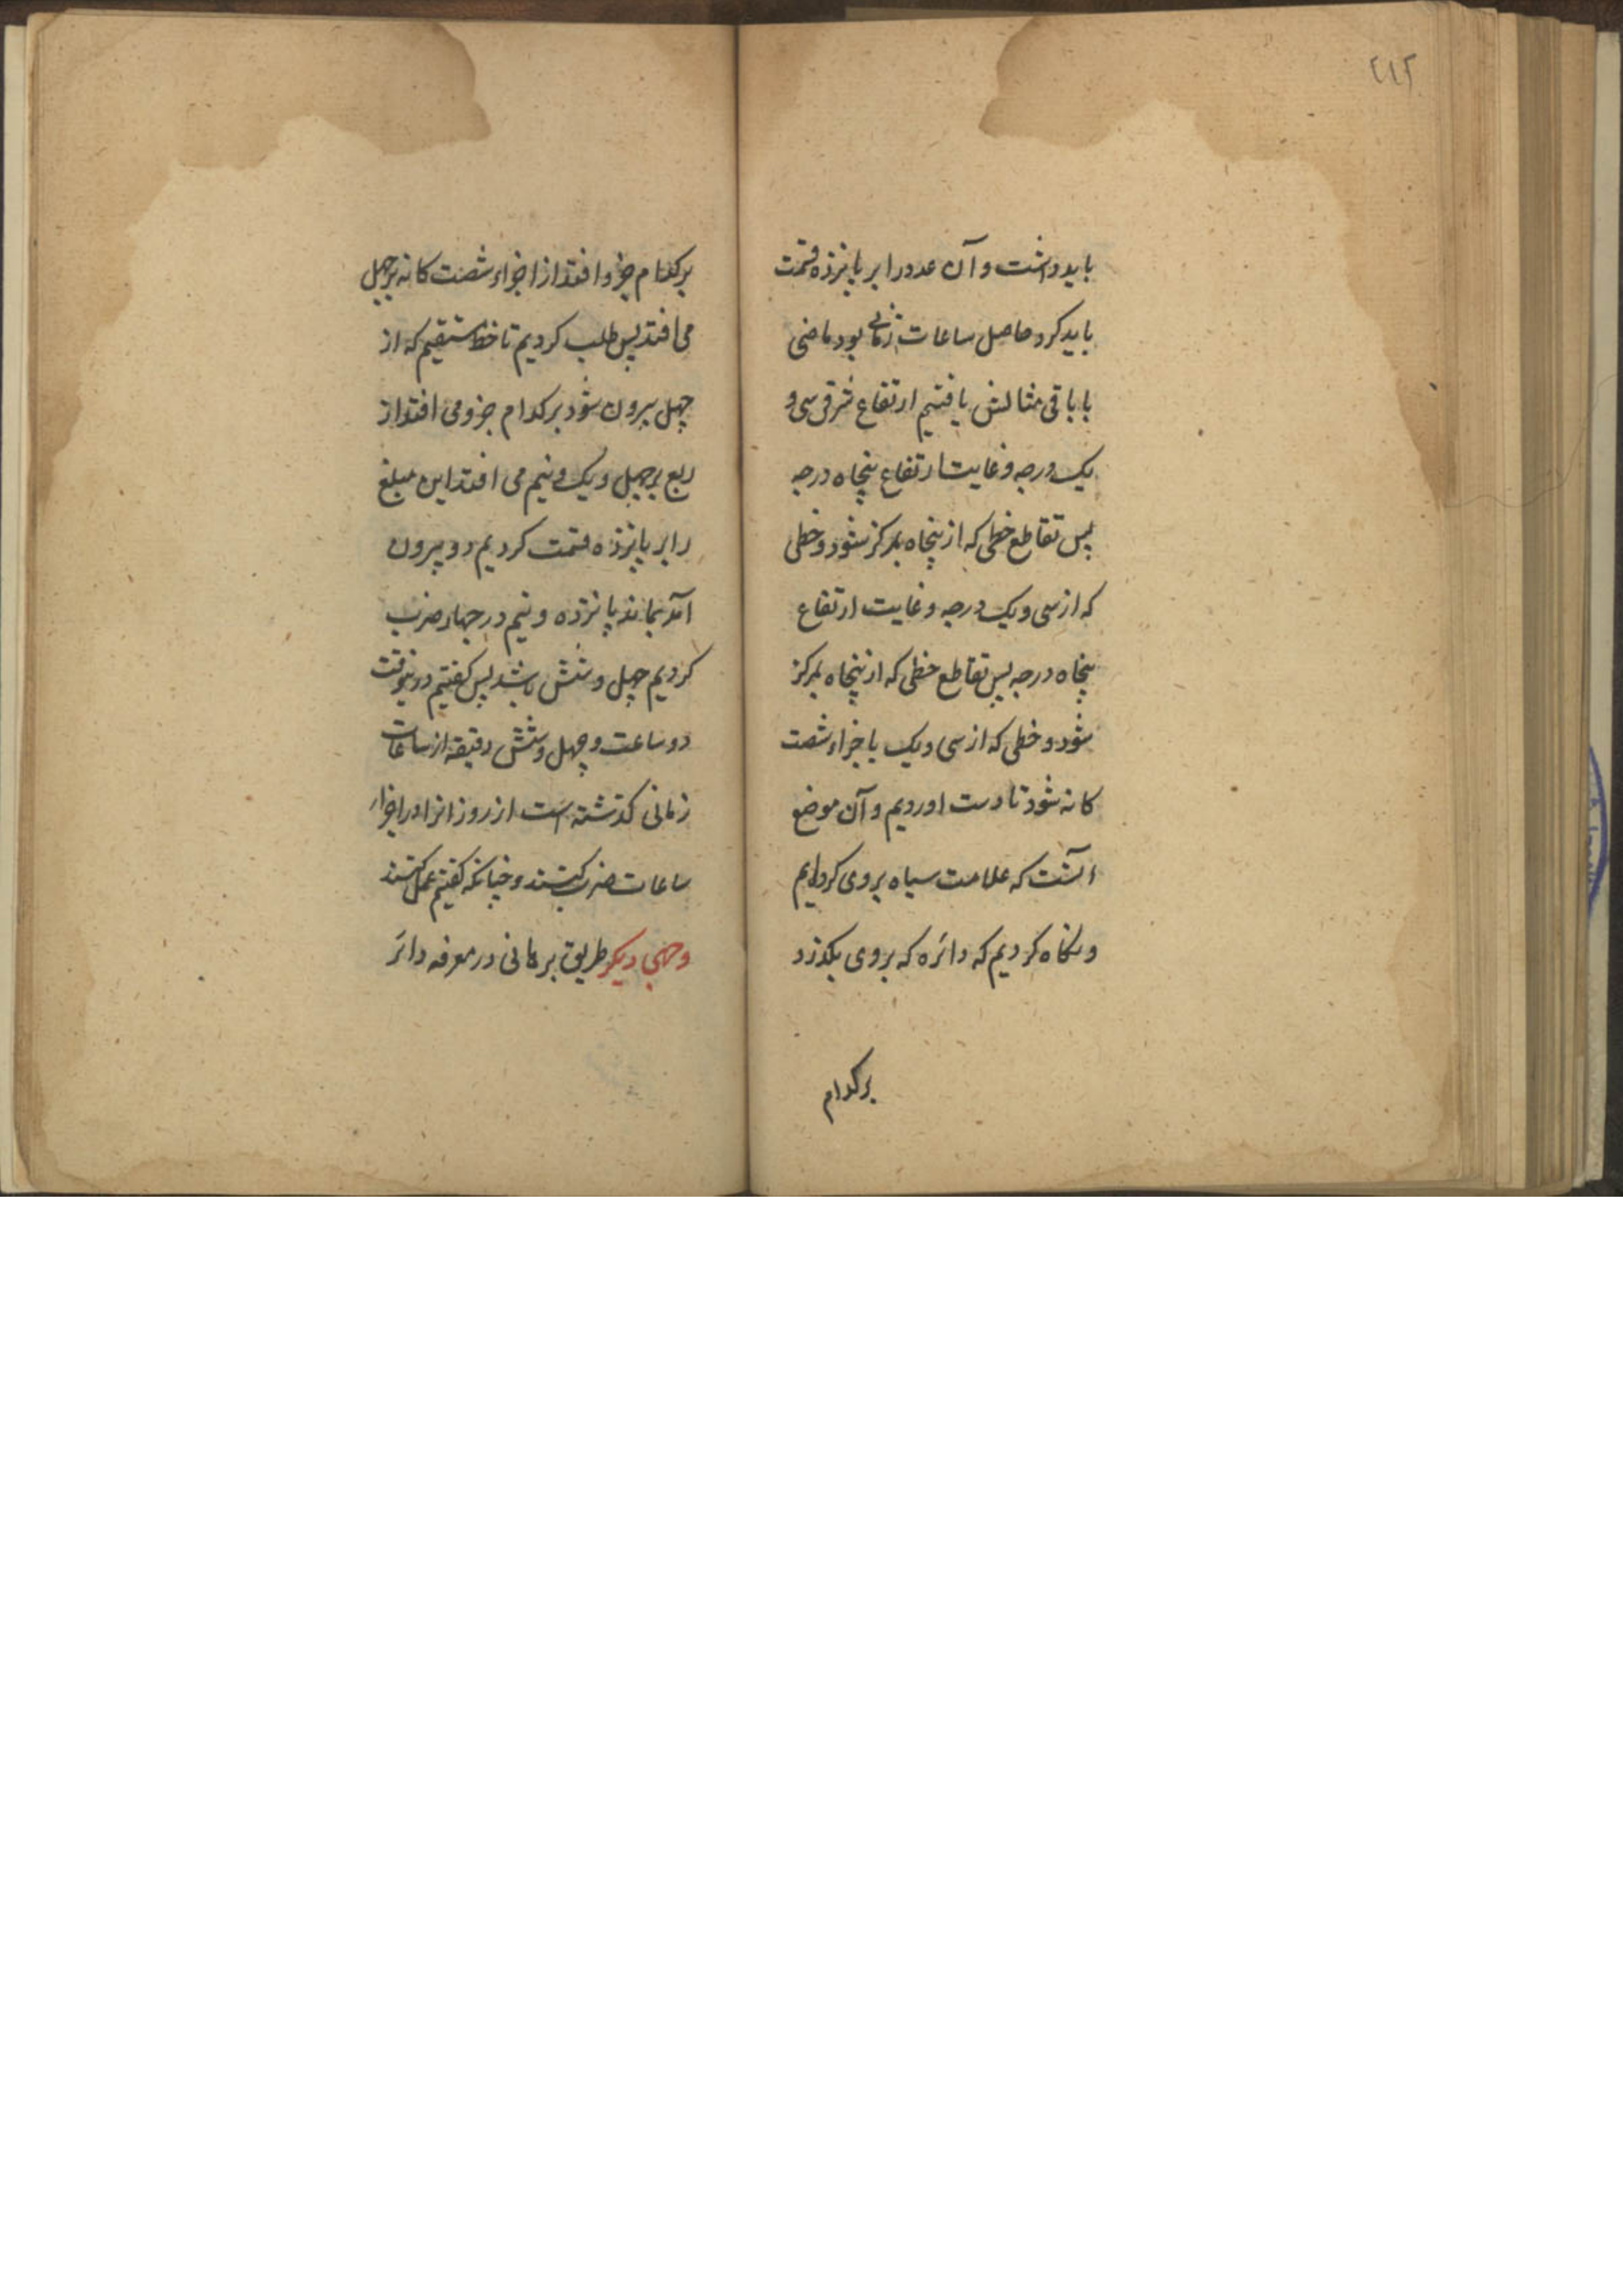 ۲۱۲
باید داشت و آن عدد را بر پانزده قسمت
باید کرد حاصل ساعات زمانی بود ماضی
با باقی مثالش یافتیم ارتفاع شرقی سی و
یک درجه و غایت ارتفاع پنجاه درجه
پس تقاطع خطی که از پنجاه بمرکز شود و خطی
که از سی و یک درجه و غایت ارتفاع
پنجاه درجه پس تقاطع خطی که از پنجاه بمرکز
شود و خطی که از سی و یک باجزاء شصت
کانه شود تا دست اوردیم و آن موضع
آنست که علامت سیاه بروی کرده‌ایم
و نکاه کردیم که دائره که بروی بکذرد
برکدام
برکدام جزو افتد از اجزاء شصت کانه بر چهل
می افتد پس طلب کردیم تا خط مستقیم که از
چهل بیرون شود بر کدام جزو می افتد از
ربع بر چهل و یک و نیم می افتد این مبلغ
را بر پانزده قسمت کردیم دو بیرون
آمد بماند یا نزده و نیم در چهار ضرب
کردیم چهل و شش باشد پس کفتیم درینوقت
دو ساعت و چهل و شش دقیقه از ساعات
زمانی کذشته است از روز انرا در اجزاء
ساعات ضرب کنند و چنانکه کفتیم عمل کنند
وجهی دیکر طریق برهانی در معرفه دائر